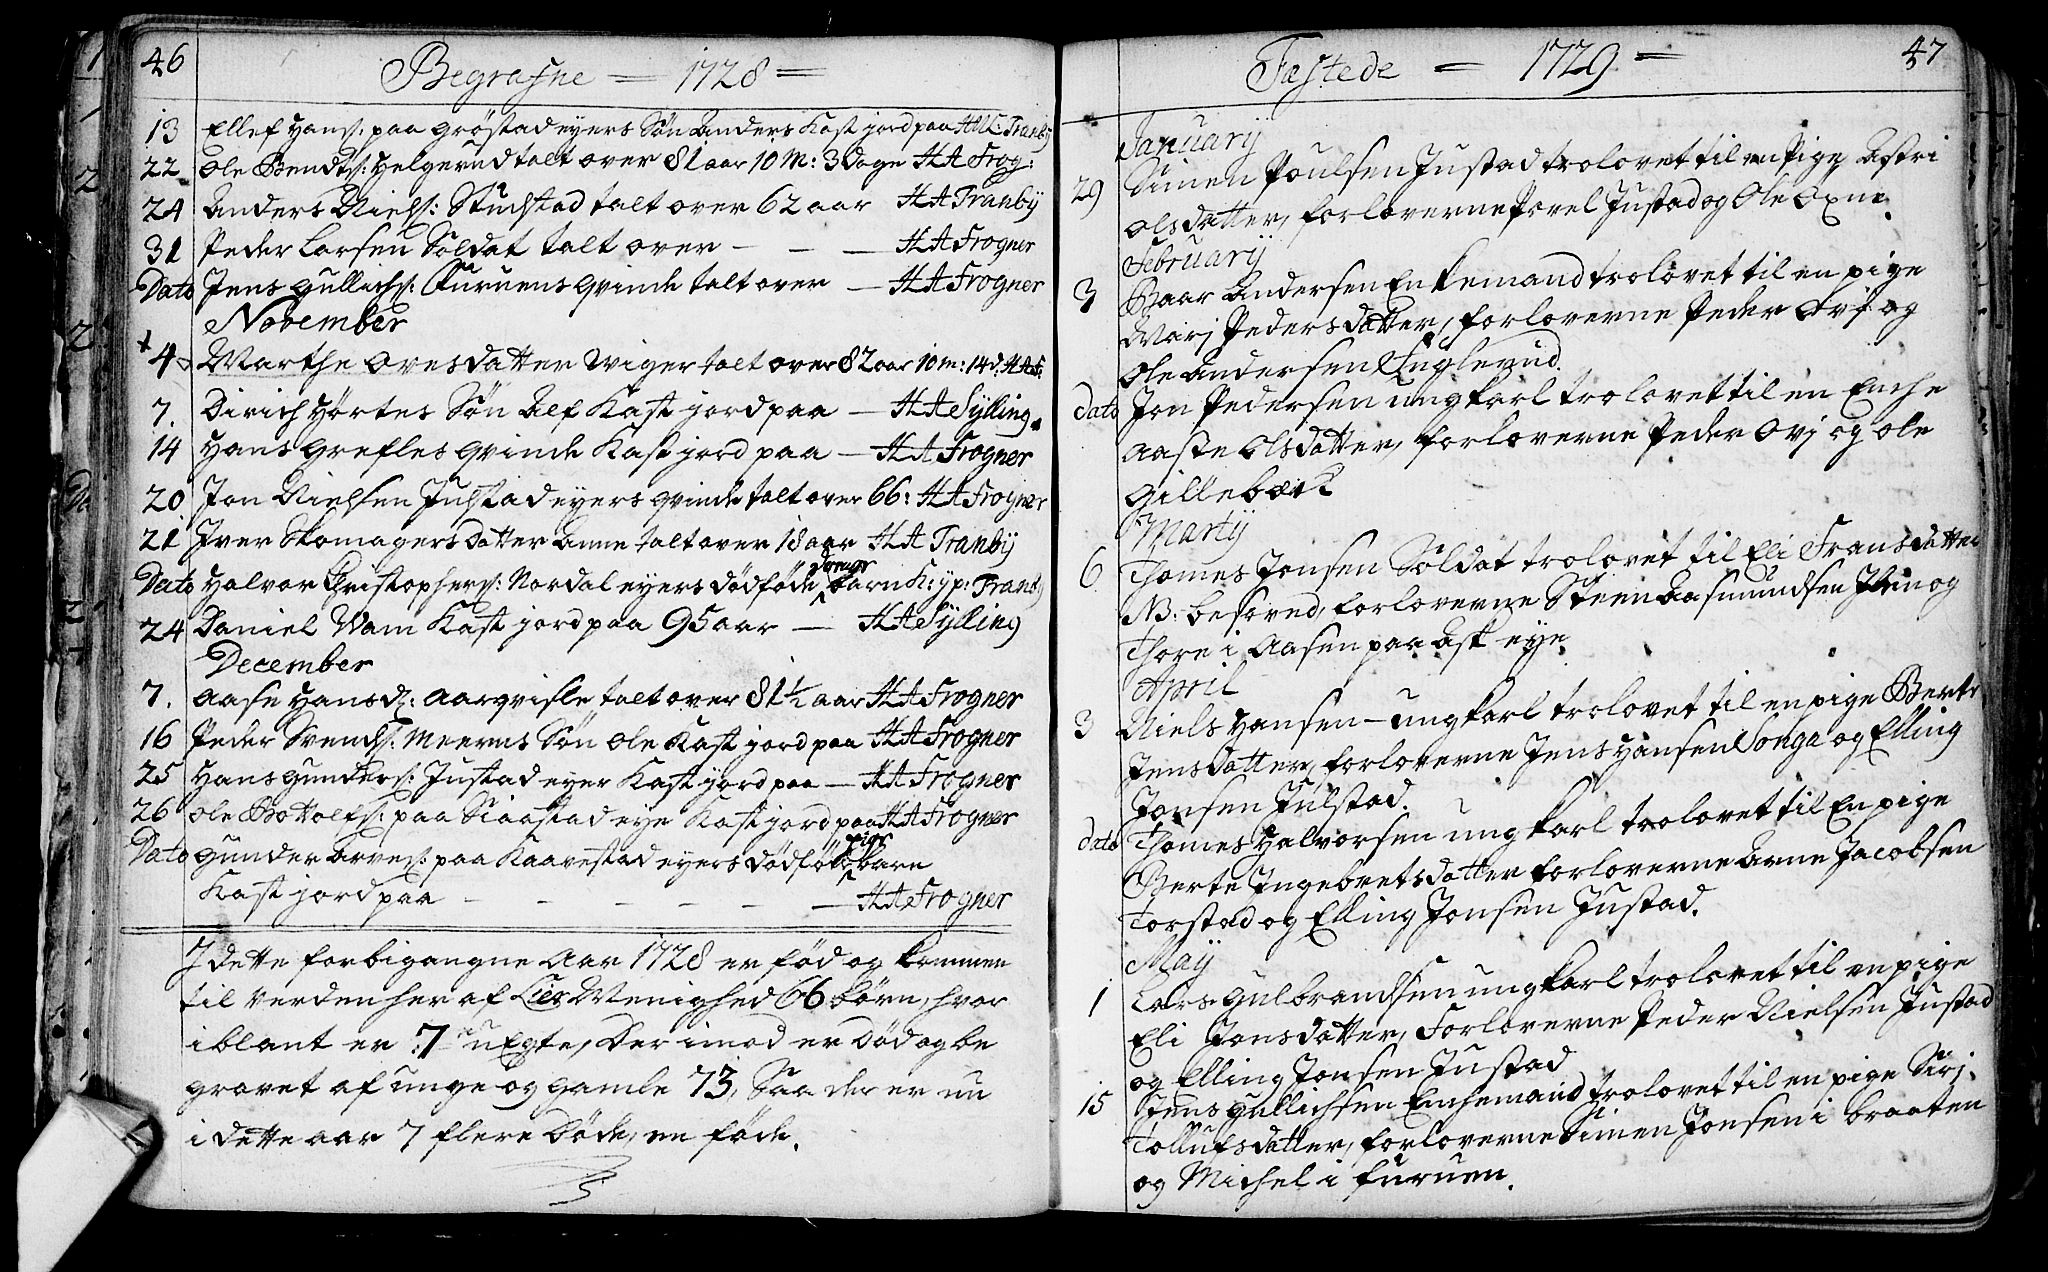 46
Begrafne = 1728 =
13 Ellef Hans: paa Gröstad eyers Sön Anders Kast jord paa HAK: Tranby
22 Ole Bendts: Helgerud talt over 81 aar 10 M: 3 Dage HA Frog:
24 Anders Niels: Stuchstad talt over 62 aar HA Tranby
31 Peder Larsen Soldat talt over — — — HA Frogner
Dato Jens Gullichs: Furuens qvinde talt over — HA Frogner
November
4 Marthe Ovesdatter Wiger talt over 82 aar 10 m: 14 d: HAF:
7. Dirich Hörtes Sön Alf Kast jord paa — HA Sylling.
14 Hans Grefles qvinde Kast jord paa — HA Frogner
20 Jon Nielsen Julstad eyers qvinde talt over 66: HA Frogner
21 Iver Skomagers datter Anne talt over 18 aar HA Tranby
Drenge
Dato Halvor Christophers: Nordal eyers dödföde barn K: jp: Tranby
24 Daniel Wam Kast jord paa 95 aar — HA Sylling
December
7. Aase Hansd: Aarqvisle talt over 81½ aar HA Frogner
16 Peder Svends: Meerens Sön Ole Kast jord paa HA Frogner
25 Hans Gunders: Justad eyer Kast jord paa — HA Frogner
26 Ole Bottolfs: paa Kiaastad eye Kast jord paa HA Frogner
pige
Dato Gunder Arves: paa Kaavestad eyers dödföde barn
Kast jord paa — — — — — — HA Frogner
I dette forbigangne Aar 1728 er föd og kommen
til verden her af Lier Menighed 66 börn, hvor
iblant er 7 uEgte, der imod er död og be
gravet af unge og gamle 73, Saa der er nu
i dette aar 7 flere döde, en föde.
47
Fæstede = 1729 =
Januarij
29 Simen Poulsen Justad trolovet til en Pige Astri
Olsdatter, forloverne Povel Justad og Ole Oxne.
Februarij
3 Baar Andersen Enkemand trolovet til en pige
Marj Pedersdatter, forloverne Peder Ovj og
Ole Andersen Englerud.
dato Jon Pedersen ungkarl trolovet til en Enche
Aaste Olsdatter, forloverne Peder Ovj og Ole
Gillebæck
Martij
6 Thomes Jonsen Soldat trolovet til Eli Fransdatter
NB: besoved, forloverne Steen Aasmundsen og
Thore i Aasen paa Ask eye.
April
3 Niels Hansen — ungkarl trolovet til en pige Berte
Jensdatter, forloverne Jens Hansen Songa og Elling
Jonsen Julstad.
dato Thomes Halvorsen ungkarl trolovet til En pige
Berte Ingebretsdatter forloverne Arne Jacobsen
Torstad og Elling Jonsen Justad.
Maij
1 Lars Gulbrandsen ungkarl trolovet til en pige
Eli Jonsdatter, Forloverne Peder Nielsen Justad
og Elling Jonsen Justad
15 Jens Gullichsen Enchemand trolovet til en pige Sirj
Tollufsdatter, forloverne Simen Jonsen i braaten
og Michel i furuen.